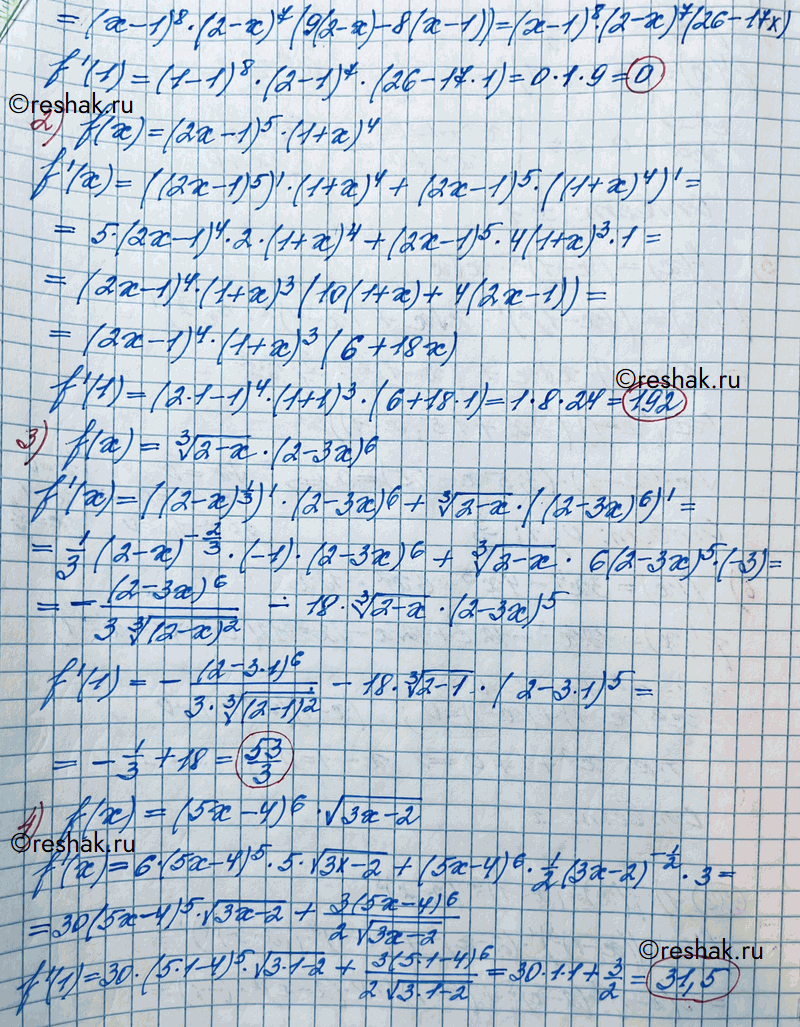 = (x-1)⁸·(2-x)⁷(9(2-x)-8(x-1))=(x-1)⁸·(2-x)⁷(26-17x)
f'(1) = (1-1)⁸·(2-1)⁷·(26-17·1)=0·1·9=0
©reshak.ru
2) f(x)=(2x-1)⁵·(1+x)⁴
f'(x)= ((2x-1)⁵)'·(1+x)⁴+(2x-1)⁵·((1+x)⁴)'=
= 5·(2x-1)⁴·2·(1+x)⁴+(2x-1)⁵·4(1+x)³·1=
= (2x-1)⁴·(1+x)³(10(1+x)+4(2x-1))=
= (2x-1)⁴·(1+x)³(6+18x)
©reshak.ru
f'(1)=(2·1-1)⁴·(1+1)³·(6+18·1)=1·8·24=192
3) f(x)= ∛(2-x)·(2-3x)⁶
f'(x)=((2-x)^(1/3))'·(2-3x)⁶+∛(2-x)·((2-3x)⁶)'=
= 1/3 (2-x)^(-2/3)·(-1)·(2-3x)⁶+∛(2-x)·6(2-3x)⁵·(-3)=
= -(2-3x)⁶/(3∛((2-x)²)) - 18·∛(2-x)·(2-3x)⁵
f'(1)= -(2-3·1)⁶/(3·∛((2-1)²)) - 18·∛(2-1)·(2-3·1)⁵=
= -1/3+18=53/3
4) f(x)=(5x-4)⁶·√(3x-2)
©reshak.ru
f'(x)=6·(5x-4)⁵·5·√(3x-2)+(5x-4)⁶·1/2(3x-2)^(-1/2)·3=
=30(5x-4)⁵·√(3x-2)+3(5x-4)⁶/(2√(3x-2))
©reshak.ru
f'(1)=30·(5·1-4)⁵·√(3·1-2)+3(5·1-4)⁶/(2√(3·1-2))=30·1·1+3/2=31,5